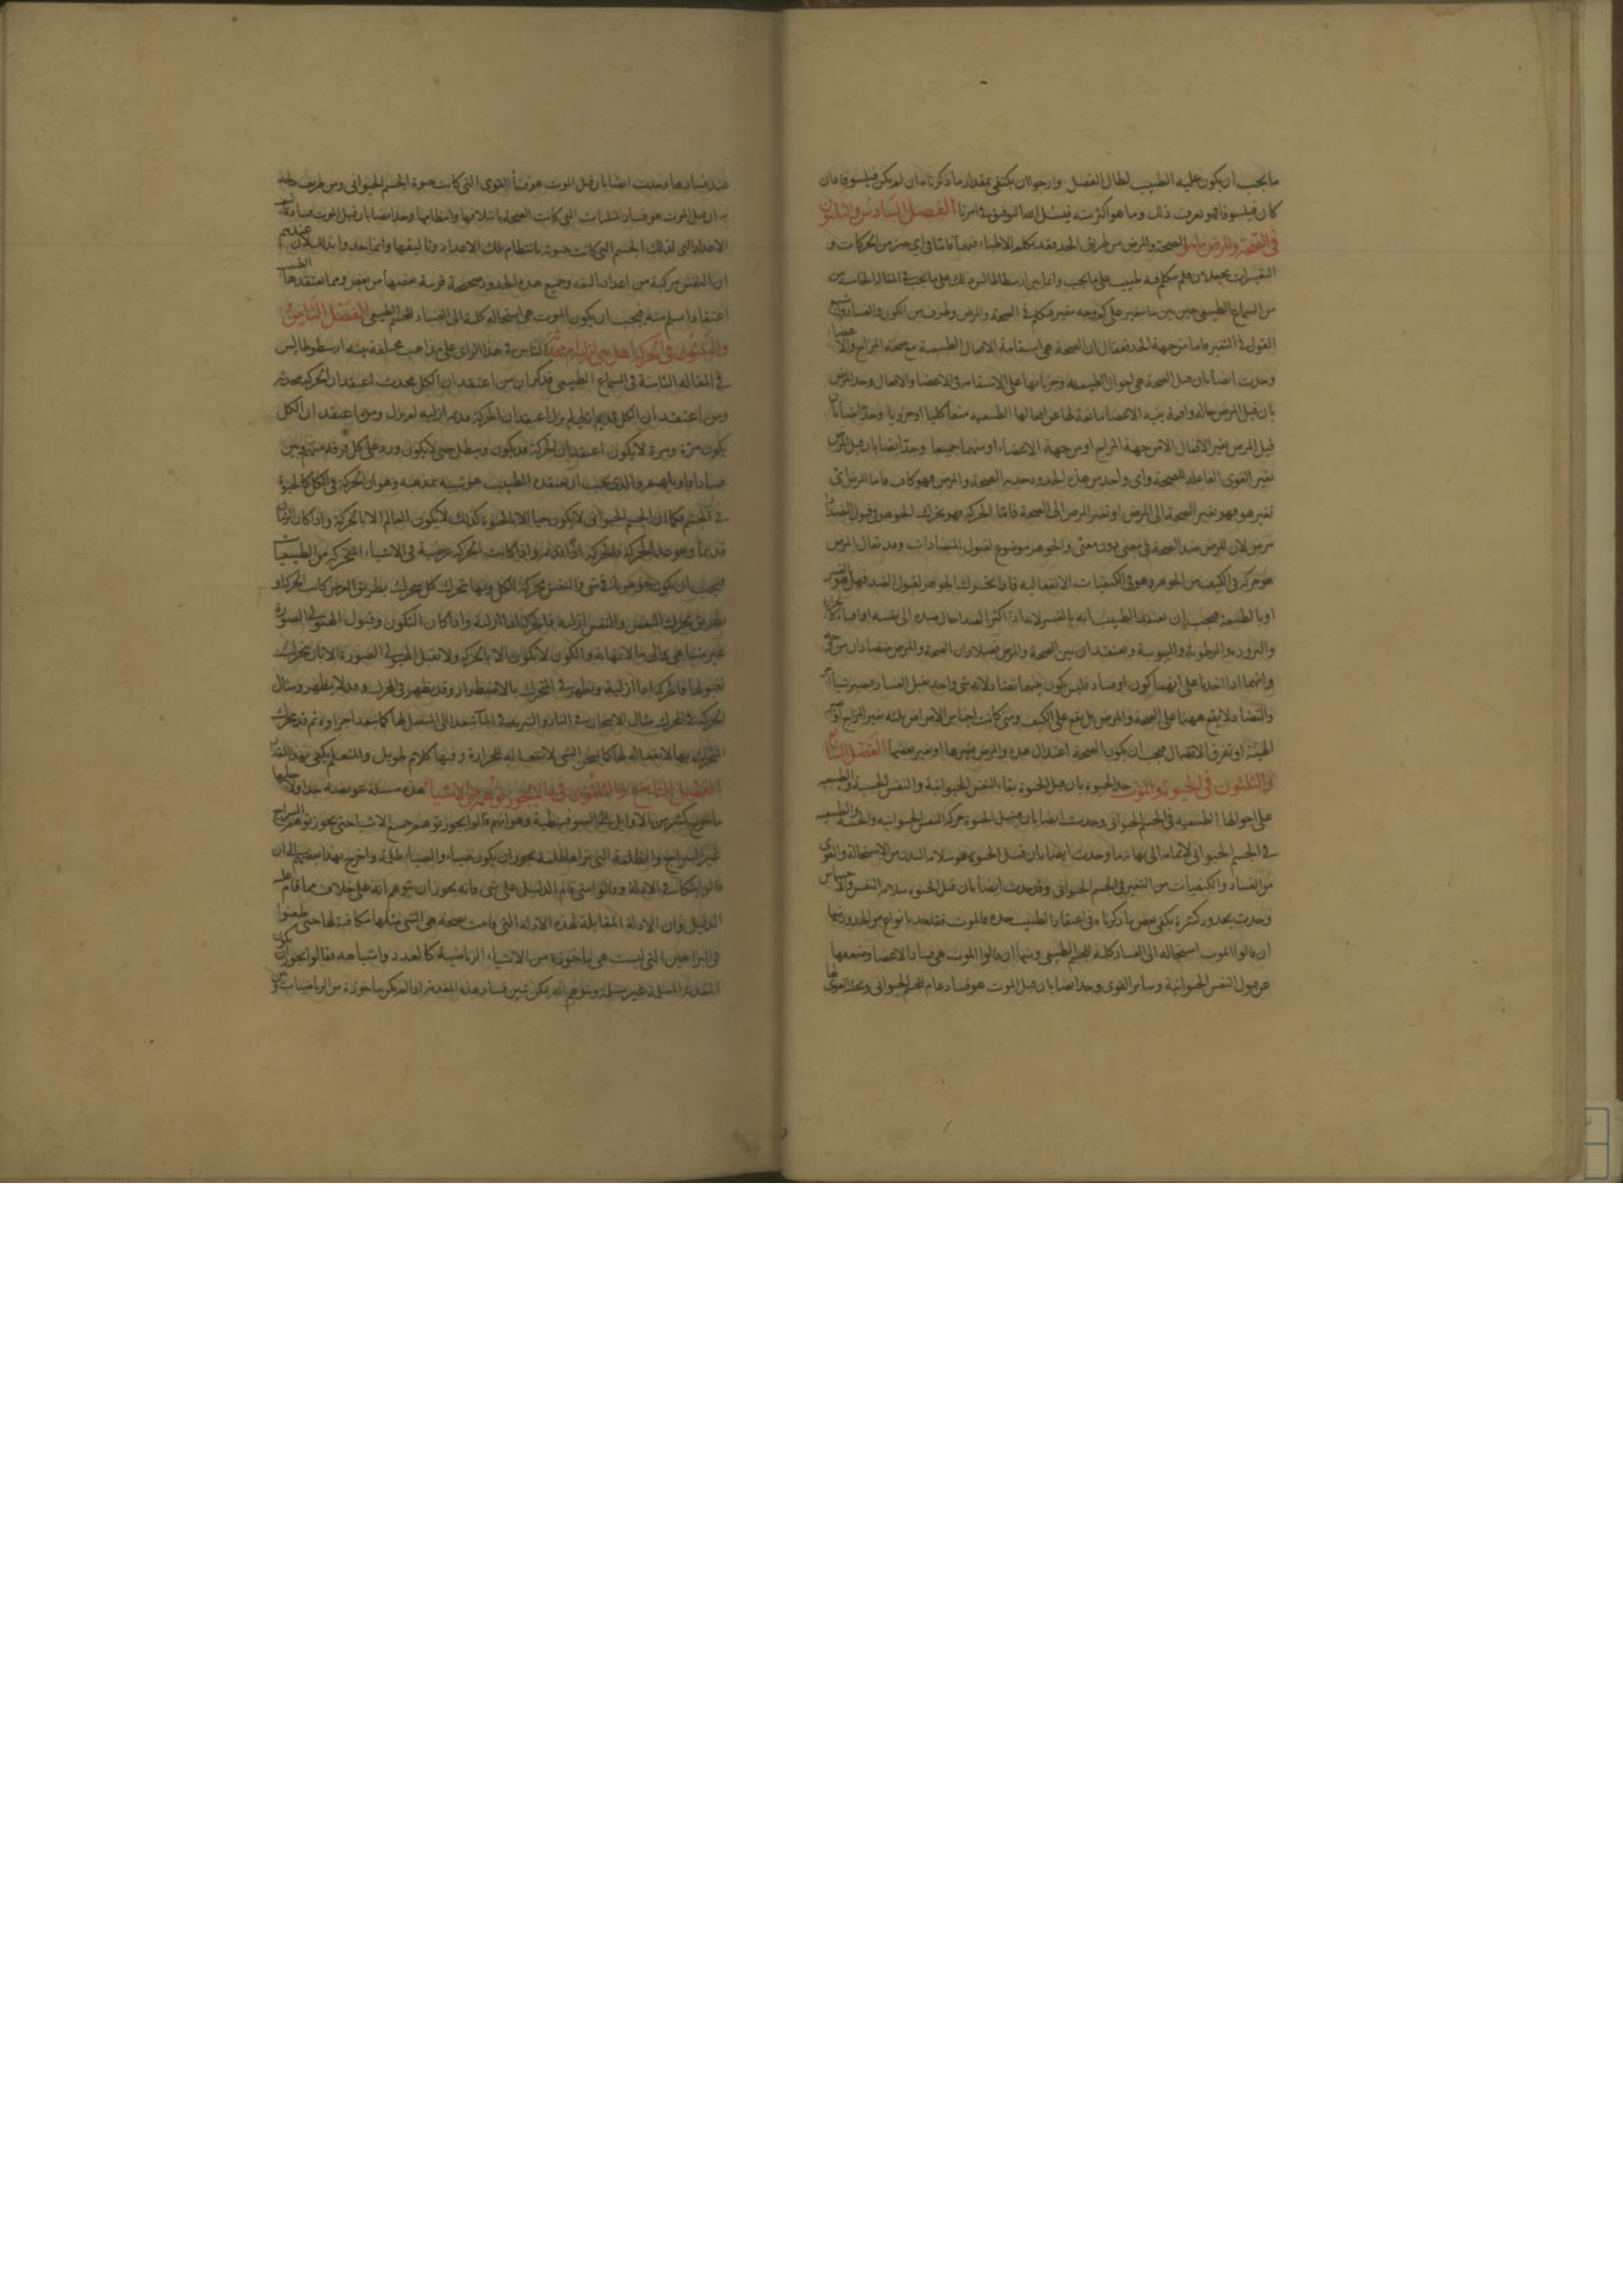 ما يجب ان يكون عليه الطبيب لطال الفصل وارجوا ان يكتفى بمقدار ما ذكرناه ان لم يكن فيلسوفا فان
كان فيلسوفا فهو يعرف ذلك وما هو اكثر منه فنسئل الله التوفيق في امرنا الفصل السادس والثلثون
في الصحة والمرض الصحة والمرض من طريق الحد فقد تكلم الاطباء فيهما فاما في اي جنس من الحركات و
التغيرات يجعلان فلم يتكلم فيه طبيب على ما يجب وانما بين ارسطاطاليس ذلك على ما يجب في المقالة الخامسة من
من السماع الطبيعى حين بين ما يتغير على كم وجه يتغير فتكلم في الصحة والمرض وطرف من الكون والفساد
القول في التغير فاما من جهة الحد فيقال ان الصحة هى استقامة الافعال الطبيعية مع صحة المزاج والاعضا
وحدت ايضا بان قيل الصحة هى احوال الطبيعة وجريانها على الاستقامة في الاعضا والافعال وحد المرض
بان قيل المرض حالة بنية الاعضا مانعة لها عن افعالها الطبيعية منعا كليا او جزويا وحد ايضا بان
قيل المرض تغير الافعال الا من جهة المزاج او من جهة الاعضاء او منهما جميعا وحد ايضا بان قيل المرض
تغير القوى الفاعلة للصحة واى واحد من هذه الحدود حد به الصحة والمرض فهو كاف فاما المرض اى
تغير هو فهو تغير الصحة الى المرض او تغير المرض الى الصحة فاما الحركة فهو تحرك الجوهر في قبول الضد
مرض لان المرض ضد الصحة في معنى دون معنى والجوهر موضوع لقبول المتضادات وقد يقال المرض
هو حركة في الكيف من الجوهر وهو في الكيفيات الانفعالية فاذا تحرك الجوهر لقبول الضد فهل هو بالقسر
او بالطبيعة فيجب ان يعتقد الطبيب انه بالقسر لانه اذا كثر الضد احال ضده الى نفسه
والبرودة والرطوبة واليبوسة ويعتقد ان بين الصحة والمرض تضاد وان الصحة والمرض متضادان من جهة
والتضاد لا يقع ههنا على الصحة والمرض بل يقع على الكيف ومتى كانت اجناس الامراض ثلثة تغير المزاج او تغير
الهيئة او تفرق الاتصال فيجب ان يكون الصحة اعتدال هذه والمرض تغيرها او تغير بعضها الفصل السابع
والثلثون في الحيوة والموت حد الحيوة بان قيل الحيوة بقاء النفس الحيوانية والنفس الحسية والطبيعية
على احوالها الطبيعية في الجسم الحيوانى وحدت ايضا بان قيل الحيوة حركة النفس الحيوانية والحسية والطبيعية
في الجسم الحيوانى وحدت ايضا بان قيل الحيوة هو سلامة البدن من الاستحالة والقوى
من الفساد والكيفيات من التغير في الجسم الحيوانى وقد حدت ايضا بان قيل الحيوة سلامة النفس والاحساس
وحدت بحدود كثيرة يكفى بعض ما ذكرناه في اعتقاد الطبيب حده فالموت فقد حد بانواع من الحدود منها
ان قالوا الموت استحالة الى الفساد كلية للجسم الطبيعى ومنها ان قالوا الموت هى فساد الاعضا وضعفها
عن قبول النفس الحيوانية وساير القوى وحد ايضا بان قيل الموت هو فساد عام للجسم الحيوانى
عند فسادها وحدت ايضا بان قيل الموت هو فناء القوى التى كانت حيوة الجسم الحيوانى ومن طريف
ان قيل الموت هو فساد التى كانت الصحة بائتلافها وانتظامها وحد ايضا بان قيل الموت فساد
الاعداد التى لذلك الجسم التى كانت حيوته بانتظام تلك الاعداد وتاليفها وانما حد بذلك لان عندهم
ان النفس مركبة من اعداد وجميع هذه الحدود صحيحة قريبة بعضها من بعض ومما يعتقدها الطبيب
اعتقادا سلم منه فيجب ان يكون الموت هى استحالة كلية الى الفساد للجسم الطبيعى الفصل الثامن
والثلثون في الحركة هل هى ازلية ام محدثة الناس في هذا الراى على مذاهب مختلفة بينه ارسطوطاليس
في المقالة الثامنة في السماع الطبيعى فذكر ان من اعتقد ان الكل محدث اعتقد ان الحركة محدثة
ومن اعتقد ان الكل قديم لم يزل اعتقد ان الحركة قديمة ازلية لم يزل ومن اعتقد ان الكل
يكون مرة ومرة لا يكون اعتقد ان الحركة قد يكون ويبطل حتى لا يكون ورد على كل فرقة منهم وبين
فساد اقاويلهم والذى يجب ان يعتقده الطبيب هو شبيه بمذهبه وهو ان الحركة في الكل كالحيوة
في الجسم فكما ان الجسم الحيوانى لا يكون حيا الا بالحيوة كذلك لا يكون العالم الا بالحركة واذا كان الزمان
قديما وهو عدد الحركة فالحركة اذا قديمة واذا كانت الحركة عرضية في الاشياء المتحركة من الطبيعيات
فيجب ان يكون جوهر يتحرك شى والنفس محركة للكل وبها تحرك كل متحرك بطريق العرض كانت الحركة او
بطريق تحريك البعض والنفس ازلية فالحركة اذا ازلية واذا كان التكون وقبول الهيولى الصورة
غير متناهى والى ما لا نهاية والكون لا يكون الا بالحركة ولا تقبل الهيولى الصورة الا بان تتحرك
لقبولها فالحركة اذا ازلية وتظهر في المتحرك بالاضطرار وقد يظهر في المحرك وقد لا يظهر ومثال
المتحرك بها لانفعاله لها كما يسخن الشى لانفعاله للحرارة وفيها كلام طويل والمتعلم يكفى بهذا القدر
الفصل التاسع والثلثون فيما لا يجوز توهمه من الاشيا هذه مسئلة عويصة جدا ولاجلها
ما خرج كثير من الاوايل الى السوفسطية وهو انهم قالوا يجوز توهم جميع الاشيا حتى يجوز توهم السراج
غير السراج والظلمة التى نراها ظلمة يجوز ان يكون ضياء والضياء ظلمة واخرج بهذا بعضهم الى ان
قالوا بتكافى الادلة وقالوا متى قام الدليل على شى فانه يجوز ان يتوهم انه على خلاف ما قام عليه
الدليل وان الادلة المقابلة لهذه الادلة التى قامت صحيحة هى مثلها مكافية لها حتى طعنوا
في البراهين التى ليست هى ماخوذة من الاشياء الرياضية كالعدد واشباهه فقالوا يجوز ان يكون
المقدمة المسلمة غير مسلمة ويتوهم انه يمكن تبين فساد هذه المقدمة اذا لم يكن ماخوذة من الرياضيات